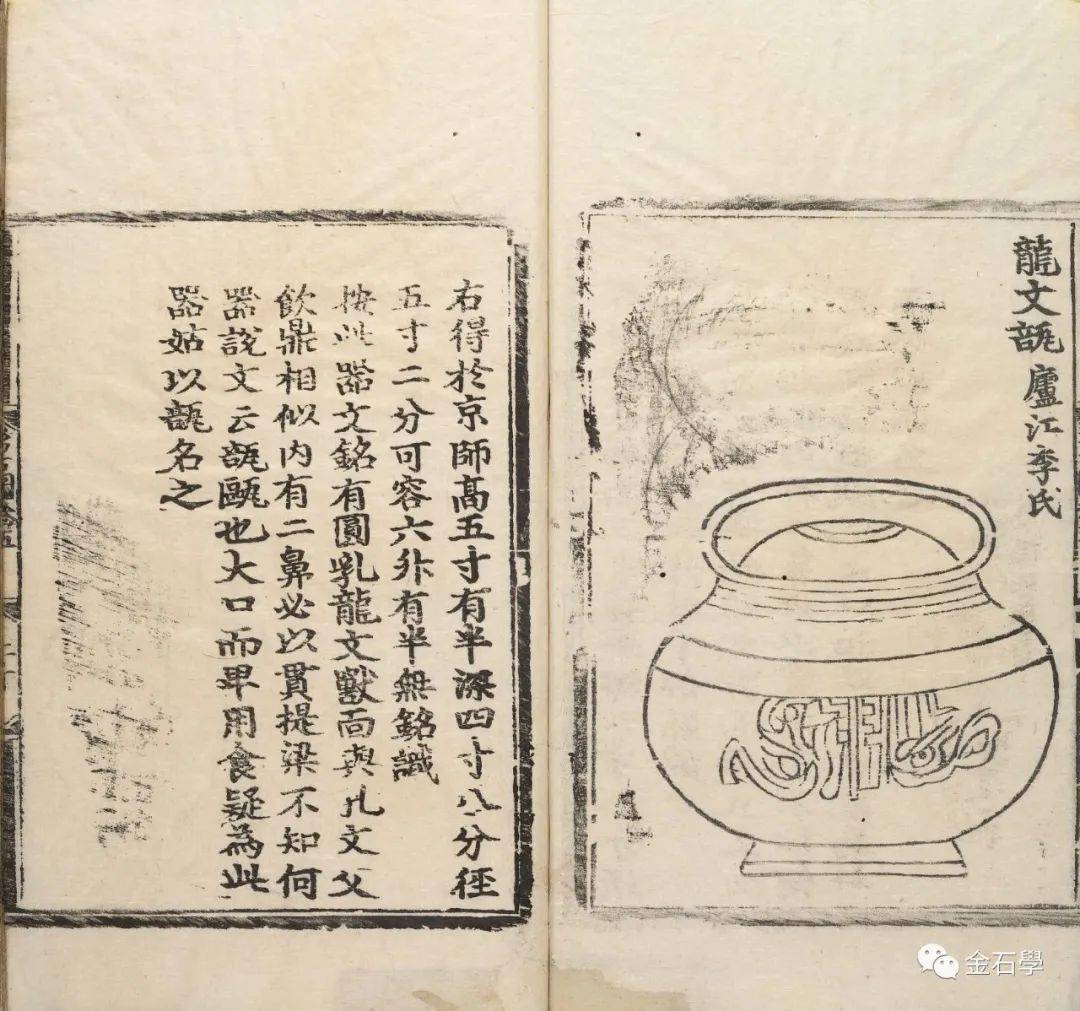 龍文瓿 廬江李氏
右得於京師髙五寸有半深四寸八分徑
五寸二分可容六升有半無銘識
按此器文銘有圓乳龍文獸面與孔文父
飲鼎相似内有二鼻必以貫提梁不知何
器說文云瓿甌也大口而卑用食疑為此
器姑以瓿名之
金石學